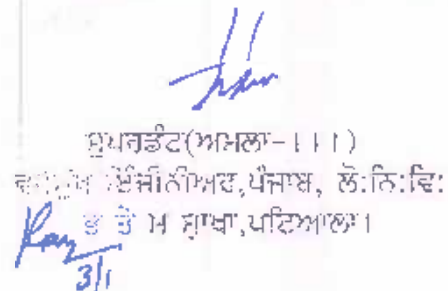 ਸੁਪਰਡੰਟ(ਅਮਲਾ-।।।)
ਇੰਜੀਨੀਅਰ,ਪੰਜਾਬ, ਲੋ:ਨਿ:ਵਿ:
ਭ ਤੇ ਮ ਸ਼ਾਖਾ,ਪਟਿਆਲਾ।
3/1